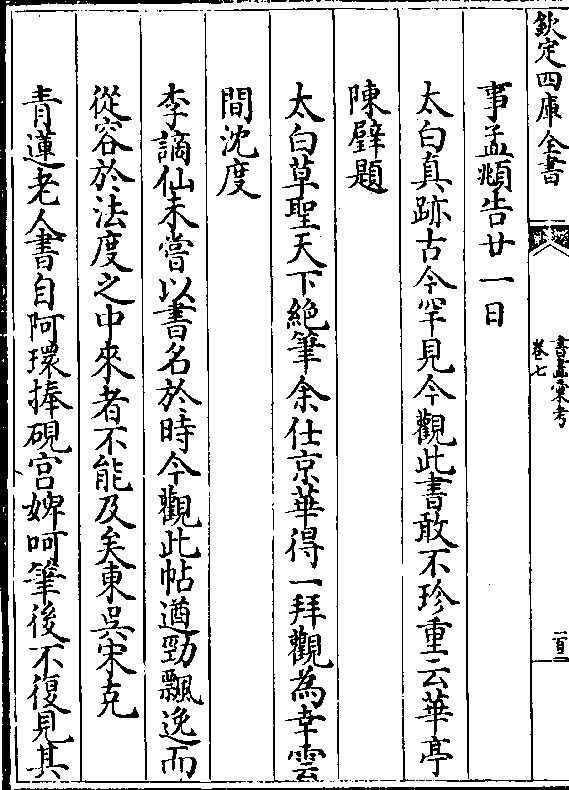 欽定四庫全書
書畫彙考
卷七
事孟頫告廿一日
太白真跡古今罕見今觀此書敢不珍重云華亭
陳璧題
太白草聖天下絶筆余仕京華得一拜觀為幸雲
間沈度
李謫仙未嘗以書名於時今觀此帖遒勁飄逸而
從容於法度之中來者不能及矣東吳宋克
青蓮老人書自阿環捧硯宫婢呵筆後不復見其